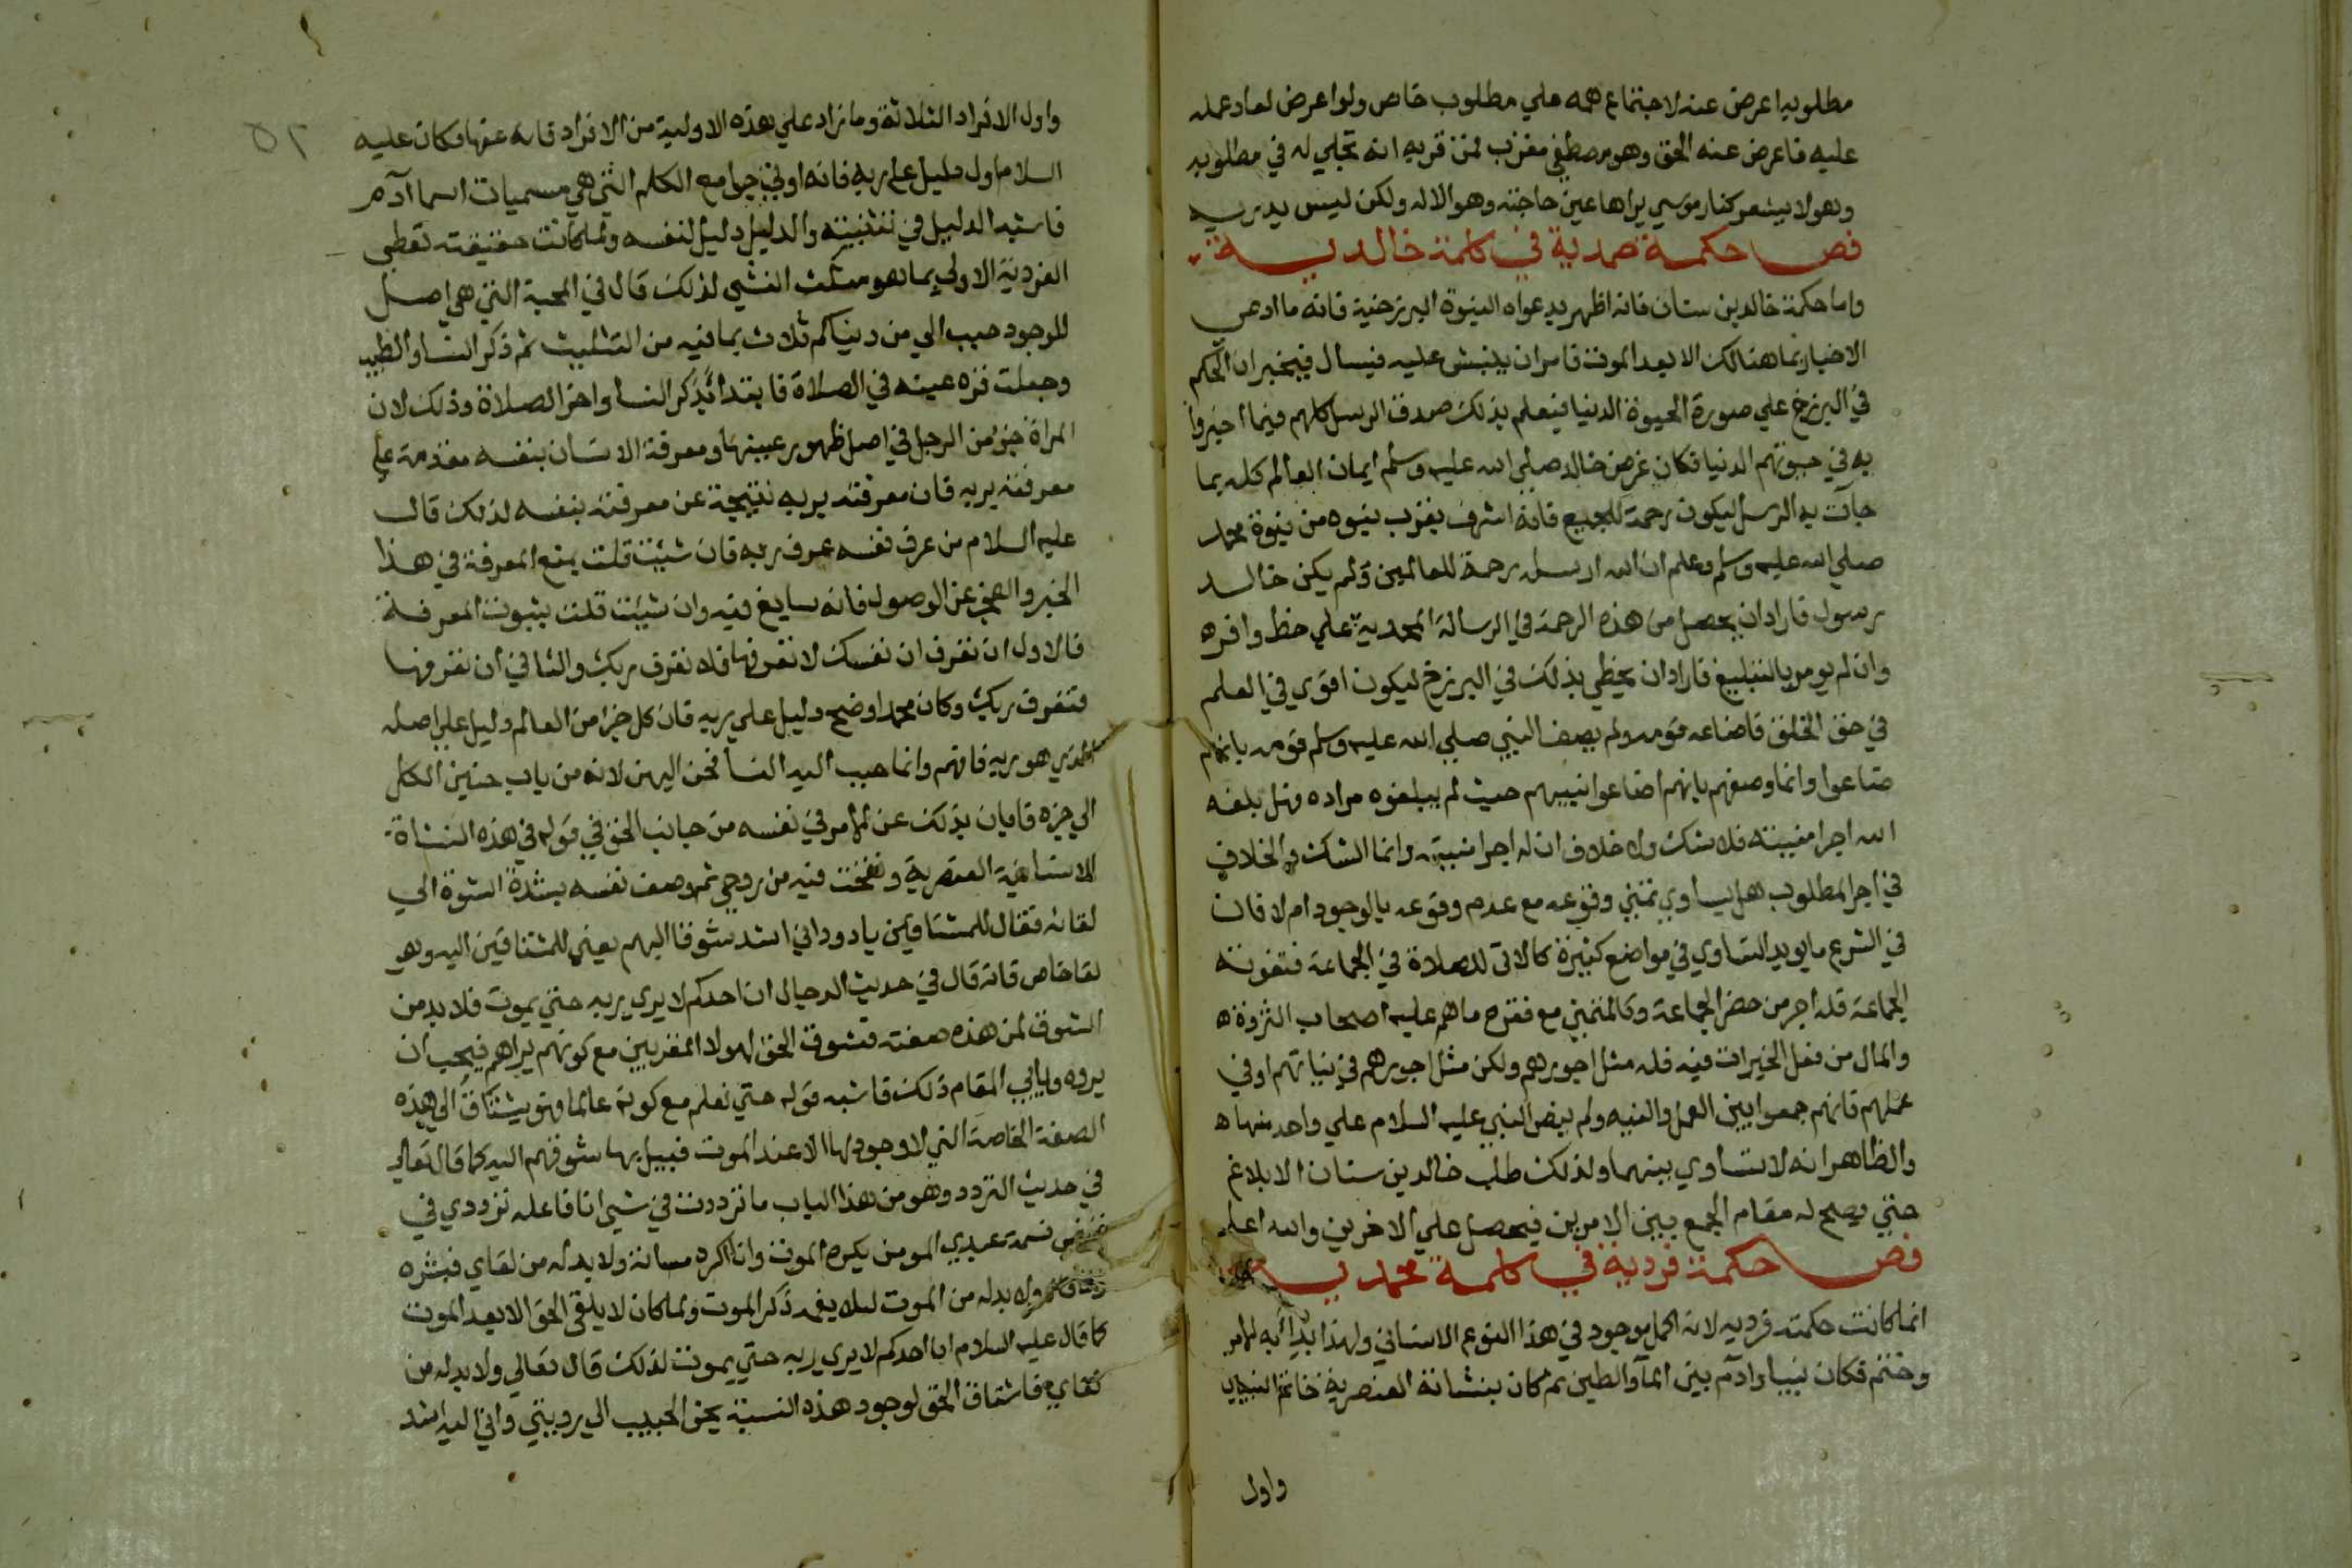 مطلوبه اعرض عنه لاجتماع همه علي مطلوب خاص ولو اعرض لعاد عمله
عليه فاعرض عنه الحق وهو مصطفي مقرب فمن قربه انه تجلي له في مطلوبه
وهو لا يشعر كنار موسي يراها عين حاجته وهو الاله ولكن ليس يدريه
فص حكمة صمدية في كلمة خالدية
واما حكمة خالد بن سنان فانه اظهر بدعواه النبوة البرزخية فانه ما ادعي
الاخبار بما هنالك الا بعد الموت فامر ان ينبش عليه فيسال فيخبر ان الحكم
في البرزخ علي صورة الحيوة الدنيا فيعلم بذلك صدق الرسل كلهم فيما اخبروا
به في حيوتهم الدنيا فكان غرض خالد صلي الله عليه وسلم ايمان العالم كله بما
جآت به الرسل ليكون رحمة للجميع فانه اشرف بقرب نبوه من نبوة محمد
صلي الله عليه وسلم وعلم ان الله ارسله رحمة للعالمين ولم يكن خالد
برسول فاراد ان يحصل من هذه الرحمة في الرسالة المحمدية علي حظ وافره
وان لم يومر بالتبليغ فاراد ان يحظي بذلك في البرزخ ليكون اقوي في العلم
في حق الخلق فاضاعه قومه ولم يصف النبي صلي الله عليه وسلم قومه بانهم
ضاعوا وانما وصفهم بانهم اضاعوا نبيهم حيث لم يبلغوه مراده فهل بلغه
الله اجر امنيته فلا شك ولا خلاف ان له اجر امنيته وانما الشك والخلاف
في اجر المطلوب هل يساوي تمني وقوعه مع عدم وقوعه بالوجود ام لا فان
في الشرع ما يويد التساوي في مواضع كثيرة كالاتي للصلاة في الجماعة فتفوته
الجماعة فله اجر من حضر الجماعة وكالمتمني مع فقره ما هم عليه اصحاب الثروة ه
والمال من فعل الخيرات فيه فله مثل اجورهم ولكن مثل اجورهم في نياتهم او في
عملهم فانهم جمعوا بين العمل والنيه ولم ينص النبي عليه السلام علي واحد منها ه
والظاهر انه لا تساوي بينهما ولذلك طلب خالد بن سنان الابلاغ
حتي يصح له مقام الجمع بين الامرين فيحصل علي الاخرين والله اعلم
فص حكمة فردية في كلمة محمدية
انما كانت حكمته فرديه لانه اكمل موجود في هذا النوع الانساني ولهذا بدأ به الامر
وختم فكان نبيا وادم بين المآ والطين ثم كان بنشاته العنصرية خاتم النبيين
واول
٥٢
واول الافراد الثلاثة وما زاد علي هذه الاولية من الافراد فانه عنها فكان عليه
السلام اول دليل علي ربه فانه اوتي جوامع الكلم التي هي مسميات اسما آدم
فاشبه الدليل في تثليثه والدليل دليل لنفسه ولما كانت حقيقته تعطي
الفردية الاولي بما هو مثلث النشي لذلك قال في المحبة التي هي اصل
للوجود حبب الي من دنياكم ثلاث بما فيه من التثليث ثم ذكر النسا والطيب
وجعلت قره عينه في الصلاة فابتدا بذكر النسا واخر الصلاة وذلك لان
المراة جزء من الرجل في اصل ظهور عينها ومعرفة الانسان بنفسه مقدمة علي
معرفته بربه فان معرفته بربه نتيجة عن معرفته بنفسه لذلك قال
عليه السلام من عرف نفسه عرف ربه فان شئت قلت بمنع المعرفة في هذا
الخبر والعجز عن الوصول فانه سايغ فيه وان شئت قلت بثبوت المعرفة
فالاول ان تعرف ان نفسك لا تعرفها فلا تعرف ربك والثاني ان تعرفها
فتعرف ربك وكان محمد اوضح دليل علي ربه فان كل جزء من العالم دليل علي اصله
الذي هو ربه فافهم وانما حبب اليه النسا فحن اليهن لانه من باب حنين الكل
الي جزه فابان بذلك عن الامر في نفسه من جانب الحق في قوله في هذه النشاة
الانسانية العنصرية ونفخت فيه من روحي ثم وصف نفسه بشدة الشوق الي
لقائه فقال للمشتاقين يا داود اني اشد شوقا اليهم يعني للمشتاقين اليه وهو
لقا خاص فانه قال في حديث الدجال ان احدكم لا يري ربه حتي يموت فلا بد من
الشوق لمن هذه صفته فشوق الحق لهولا المقربين مع كونهم يراهم فيحب ان
يروه ويابي المقام ذلك فاشبه قوله حتي نعلم مع كونه عالما فهو يشتاق الي هذه
الصفة الخاصة التي لا وجود لها الا عند الموت فيبل بها شوقهم اليه كما قال تعالي
في حديث التردد وهو من هذا الباب ما ترددت في شي انا فاعله ترددي في
قبض نسمة عبدي المومن يكره الموت وانا اكره مسائته ولا بد له من لقاي فبشره
ولا بد له من الموت ليلا يغمه ذكر الموت ولما كان لا يلقي الحق الا بعد الموت
كما قال عليه السلام ان احدكم لا يري ربه حتي يموت لذلك قال تعالي ولا بد له من
لقاي فاشتاق الحق لوجود هذه النسبة يحن الحبيب الي رويتي واني اليه اشد